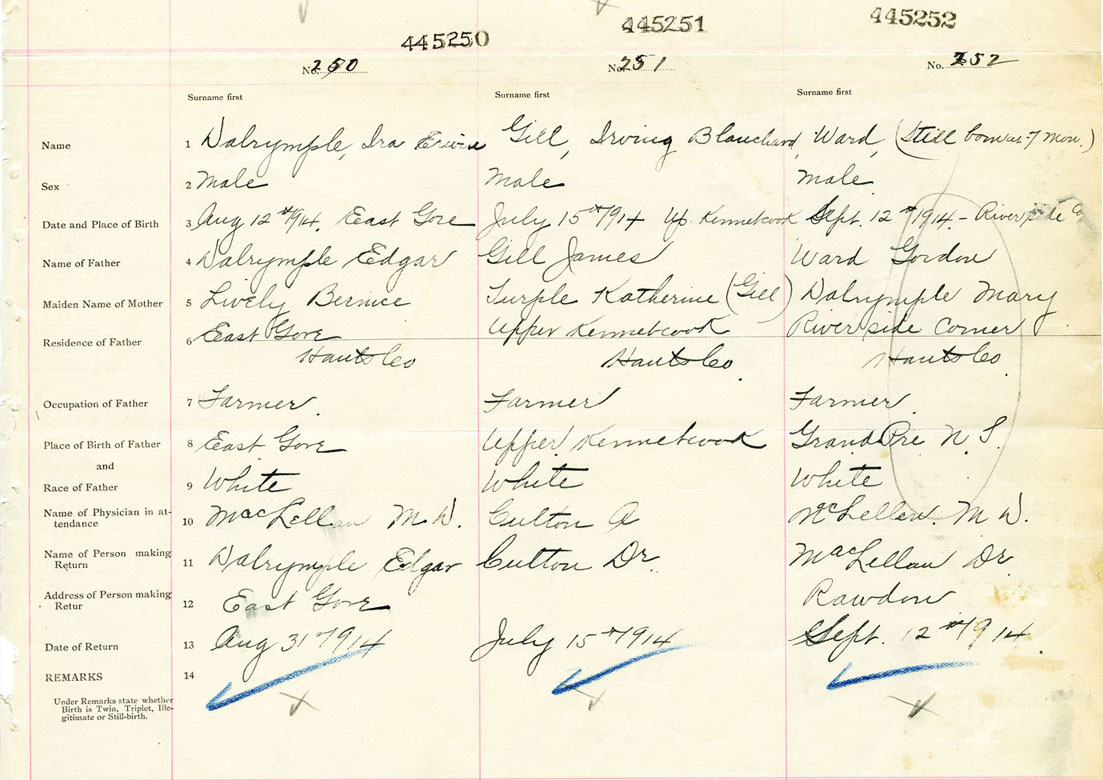 445250 445251 445252
No. 250 No. 251 No. 252
Surname first Surname first Surname first
Name 1 Dalrymple, Ira Gill, Irving Blanchard Ward, (Still born 7 mon.)
Sex 2 Male Male Male
Date and Place of Birth 3 Aug 12th 1914. East Gore July 15th 1914 Up. Kennetcook Sept. 12th 1914 - Riverside Co
Name of Father 4 Dalrymple Edgar Gill James Ward Gordon
Maiden Name of Mother 5 Lively Bernice Turple Katherine (Gill) Dalrymple Mary
Residence of Father 6 East Gore Upper Kennetcook Riverside Corner
Hants Co Hants Co. Hants Co.
Occupation of Father 7 Farmer. Farmer Farmer.
Place of Birth of Father 8 East Gore Upper Kennetcook Grand Pre N. S.
and
Race of Father 9 White White White
Name of Physician in at-
tendance 10 MacLellan M.D. Cutton A McLellan M D.
Name of Person making
Return 11 Dalrymple Edgar Cutton Dr. MacLellan Dr
Address of Person making
Retur 12 East Gore Rawdon
Date of Return 13 Aug 31st 1914 July 15th 1914 Sept. 12th 1914
REMARKS 14
Under Remarks state whether
Birth is Twin, Triplet, Ille-
gitimate or Still-birth.